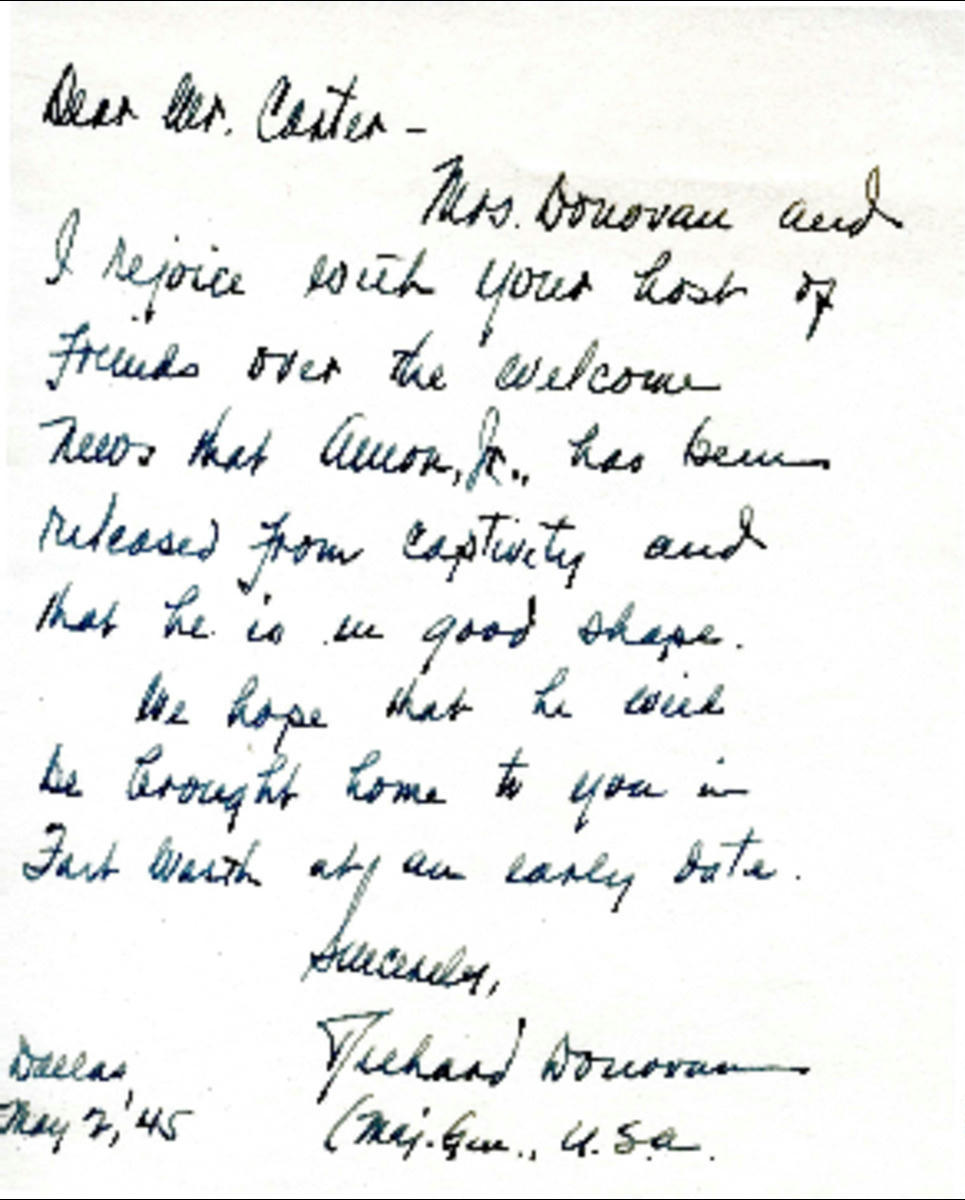 Dear Mr. Carter -
Mrs. Donovan and
I rejoice with your host of
friends over the welcome
news that Amon, Jr., has been
released from captivity and
that he is in good shape.
We hope that he will
be brought home to you in
Fort Worth at an early date.
Sincerely,
Richard Donovan
(Maj. Gen., U.S.A.
Dallas,
May 2, '45